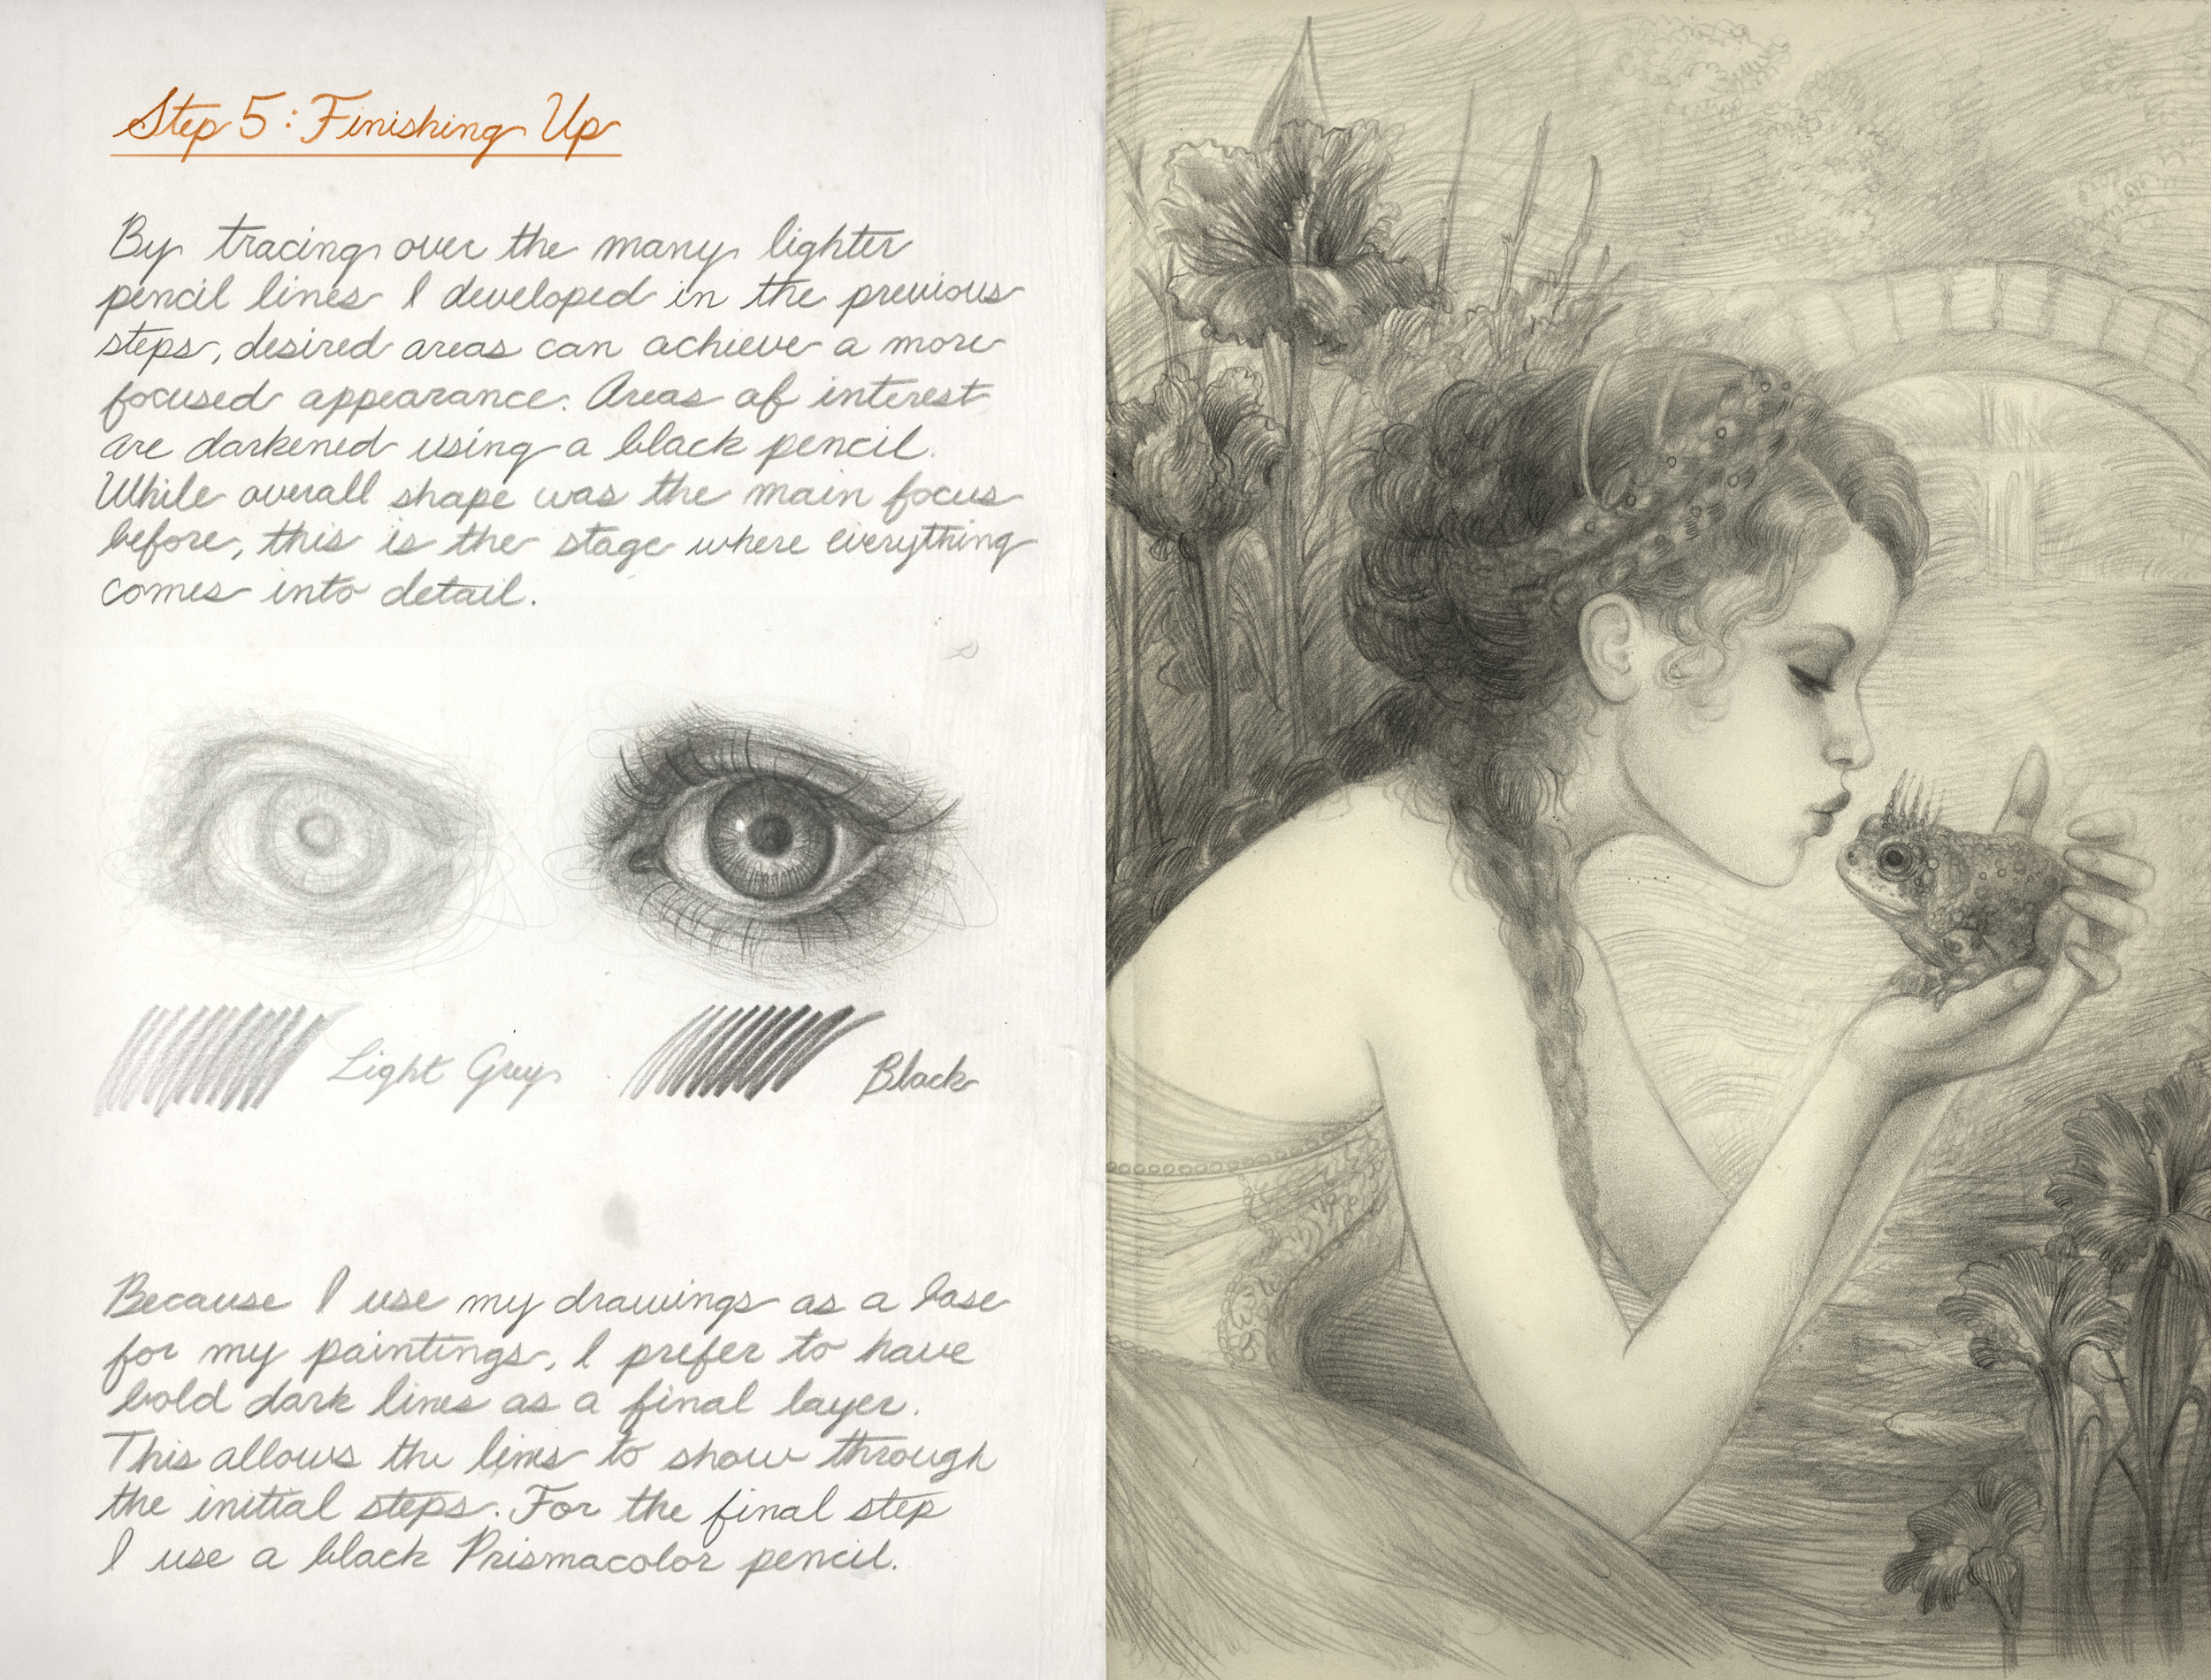 Step 5: Finishing Up
By tracing over the many lighter
pencil lines I developed in the previous
steps, desired areas can achieve a more
focused appearance. Areas of interest
are darkened using a black pencil.
While overall shape was the main focus
before, this is the stage where everything
comes into detail.
Light Grey
Black
Because I use my drawings as a base
for my paintings, I prefer to have
bold dark lines as a final layer.
This allows the lines to show through
the initial steps. For the final step
I use a black Prismacolor pencil.